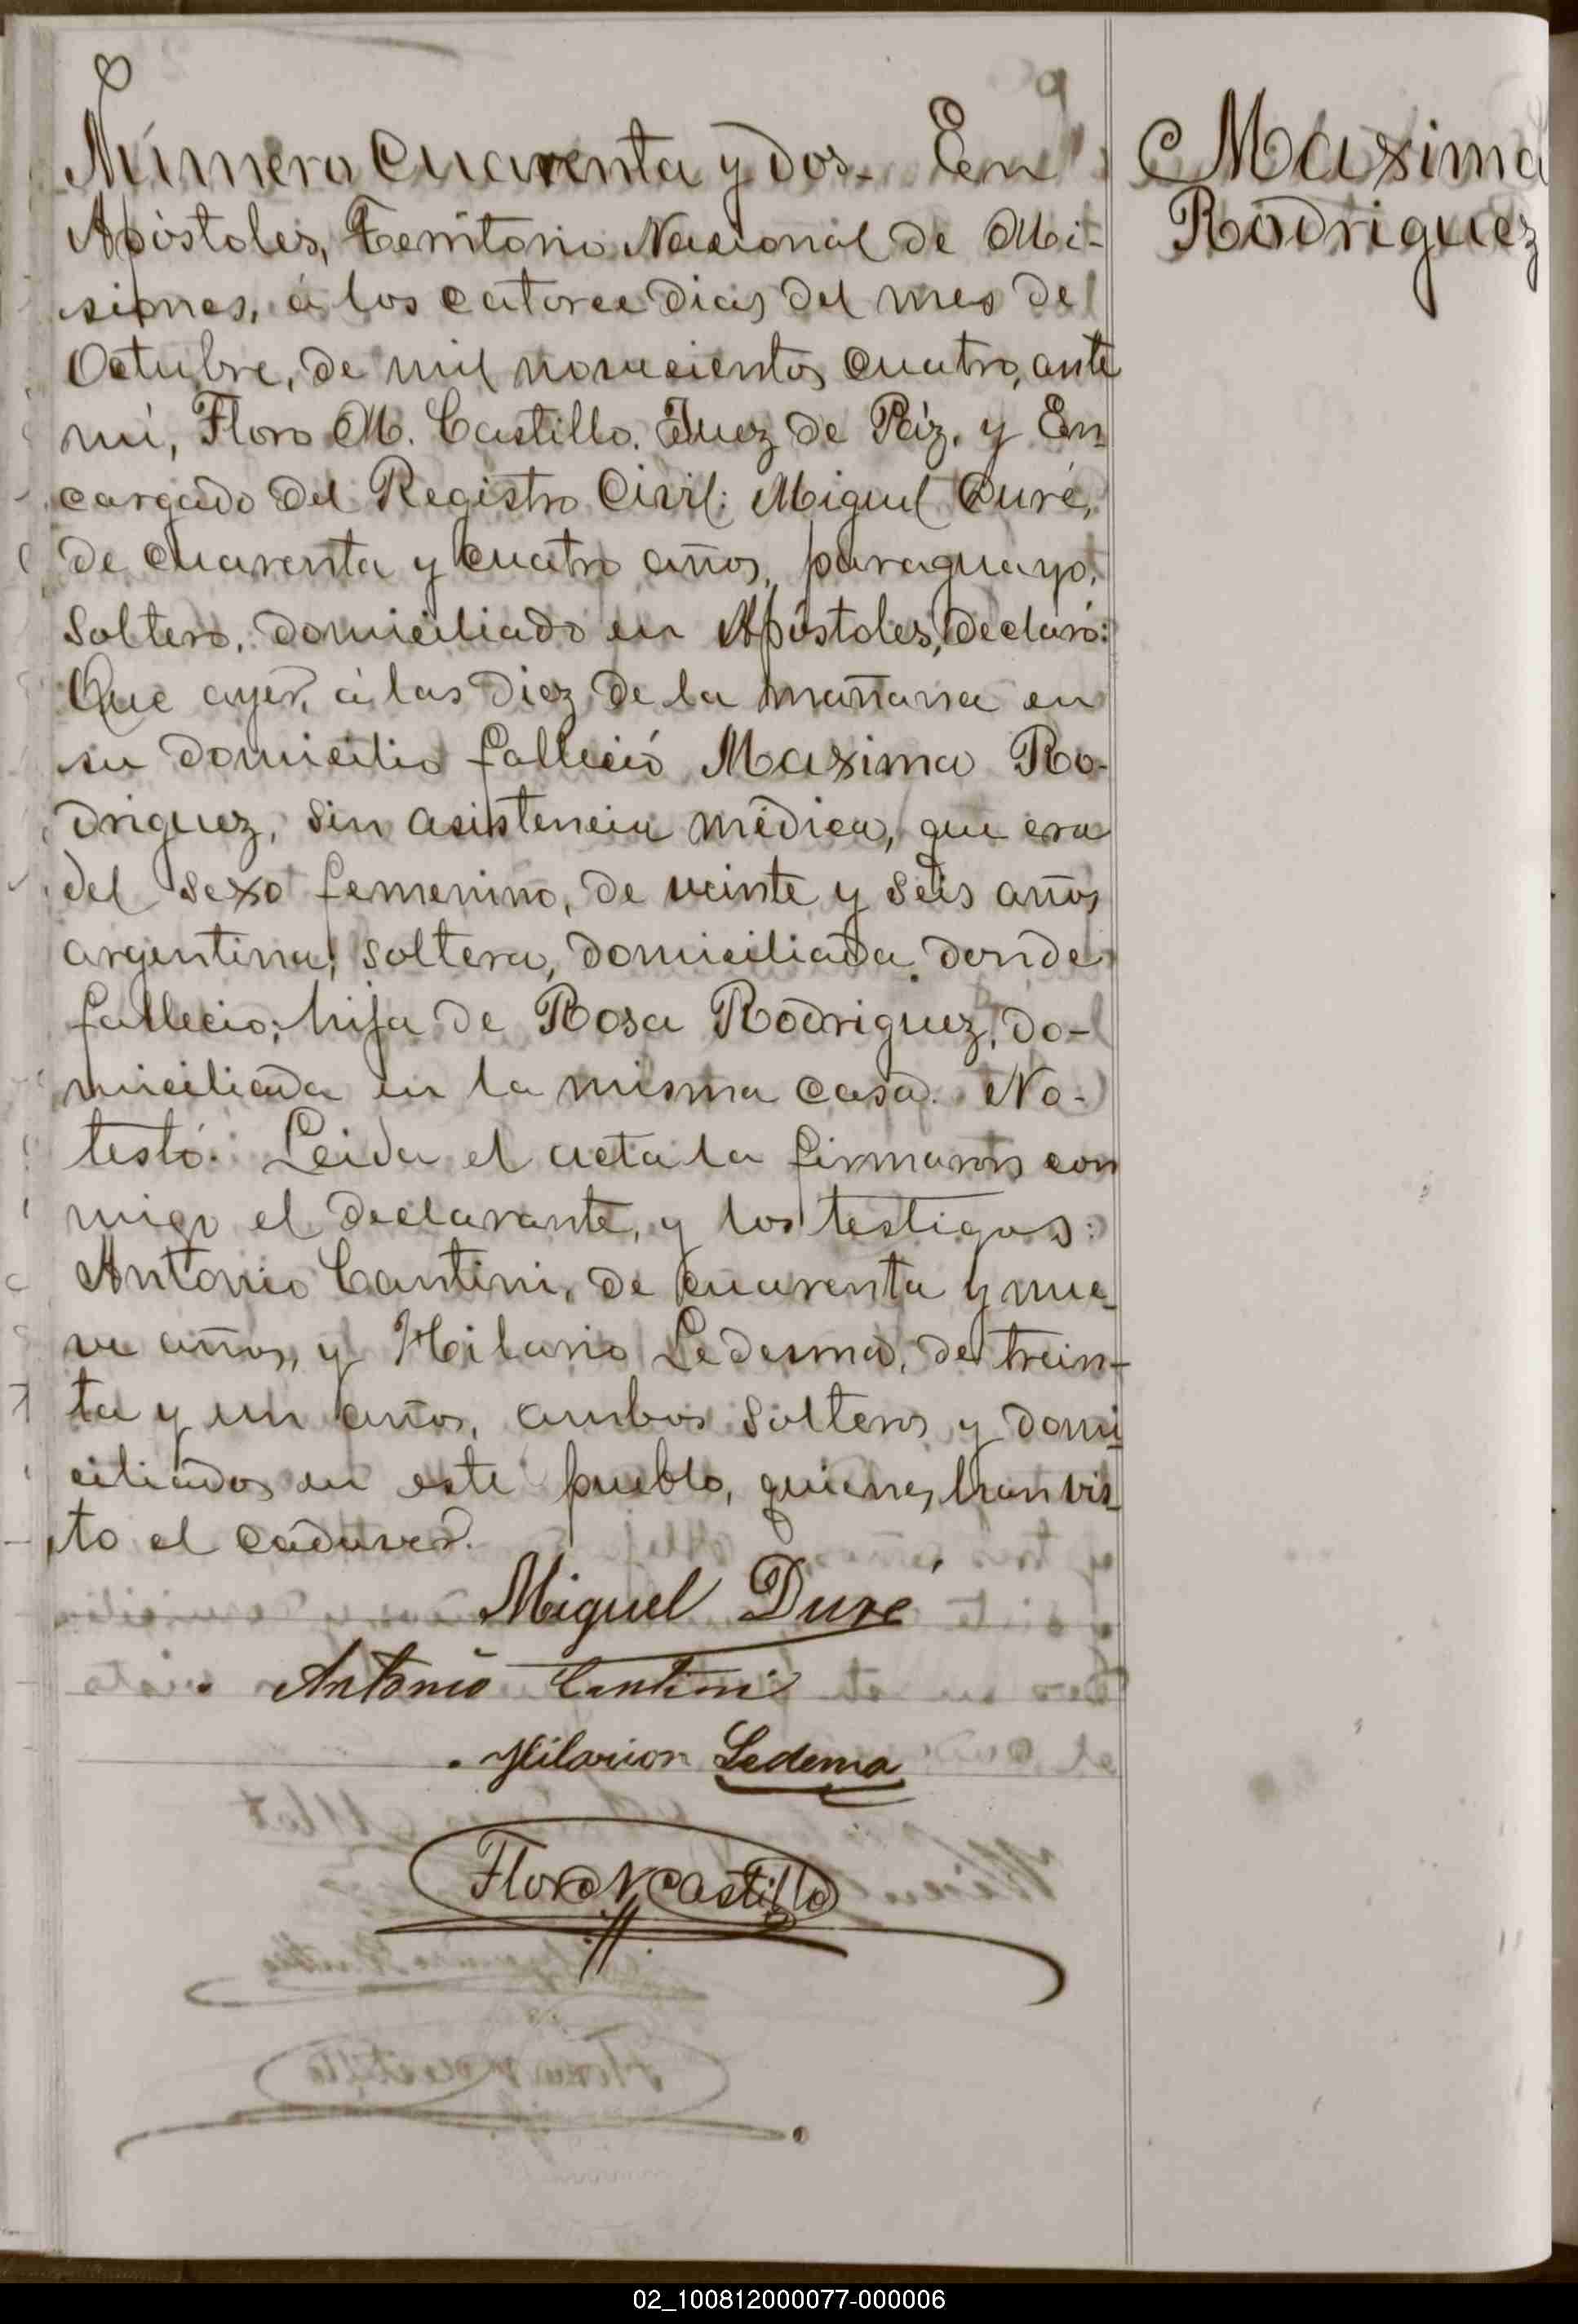 Número cuarenta y dos. En
Maxima
Rodriguez
Apóstoles, Territorio Nacional de Mi-
siones, á los catorce dias del mes de
Octubre, de mil novecientos cuatro, ante
mí, Floro M. Castillo. Juez de Páz, y En-
cargado del Registro Civil: Miguel Duré,
de cuarenta y cuatro años, paraguayo,
soltero, domiciliado en Apóstoles, declaró:
Que ayer, á las diez de la mañana en
su domicilio falleció Maxima Ro-
driguez, sin asistencia médica, que era
del sexo femenino, de veinte y seis años
argentina, soltera, domiciliada donde
fallecio; hija de Rosa Rodriguez, do-
miciliada en la misma casa. No-
testó. Leida el acta la firmaron con
migo el declarante, y los testigos:
Antonio Cantini, de cuarenta y nue-
ve años, y Hilario Ledesma, de trein-
ta y un años, ambos solteros y domi-
ciliados en este pueblo, quienes han vis-
to el cadaver.
Miguel Duré
Antonio Cantini
Hilarion Ledema
Floro M Castillo
02_100812000077-000006